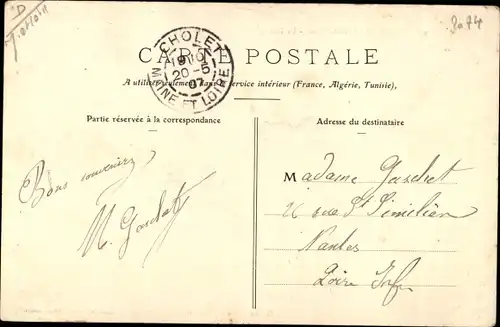 CARTE POSTALE
CHOLET
19 10
20 -5
07
MAINE ET LOIRE
A utiliser seulement dans le service intérieur (France, Algérie, Tunisie),
Partie réservée à la correspondance
Adresse du destinataire
Bons souvenirs
M. Gaschet
Madame Gaschet
26 rue St Similien
Nantes
Loire Inf